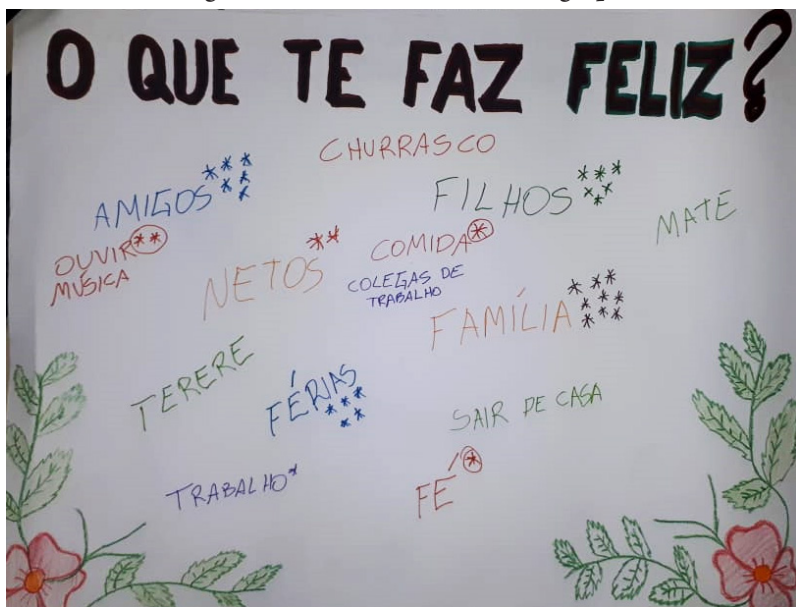 O QUE TE FAZ FELIZ?
CHURRASCO
AMIGOS ******
FILHOS ******
MATE
OUVIR **
MÚSICA
NETOS **
COMIDA *
COLEGAS DE
TRABALHO
FAMÍLIA *********
TERERE
FÉRIAS *****
SAIR DE CASA
TRABALHO *
FÉ *